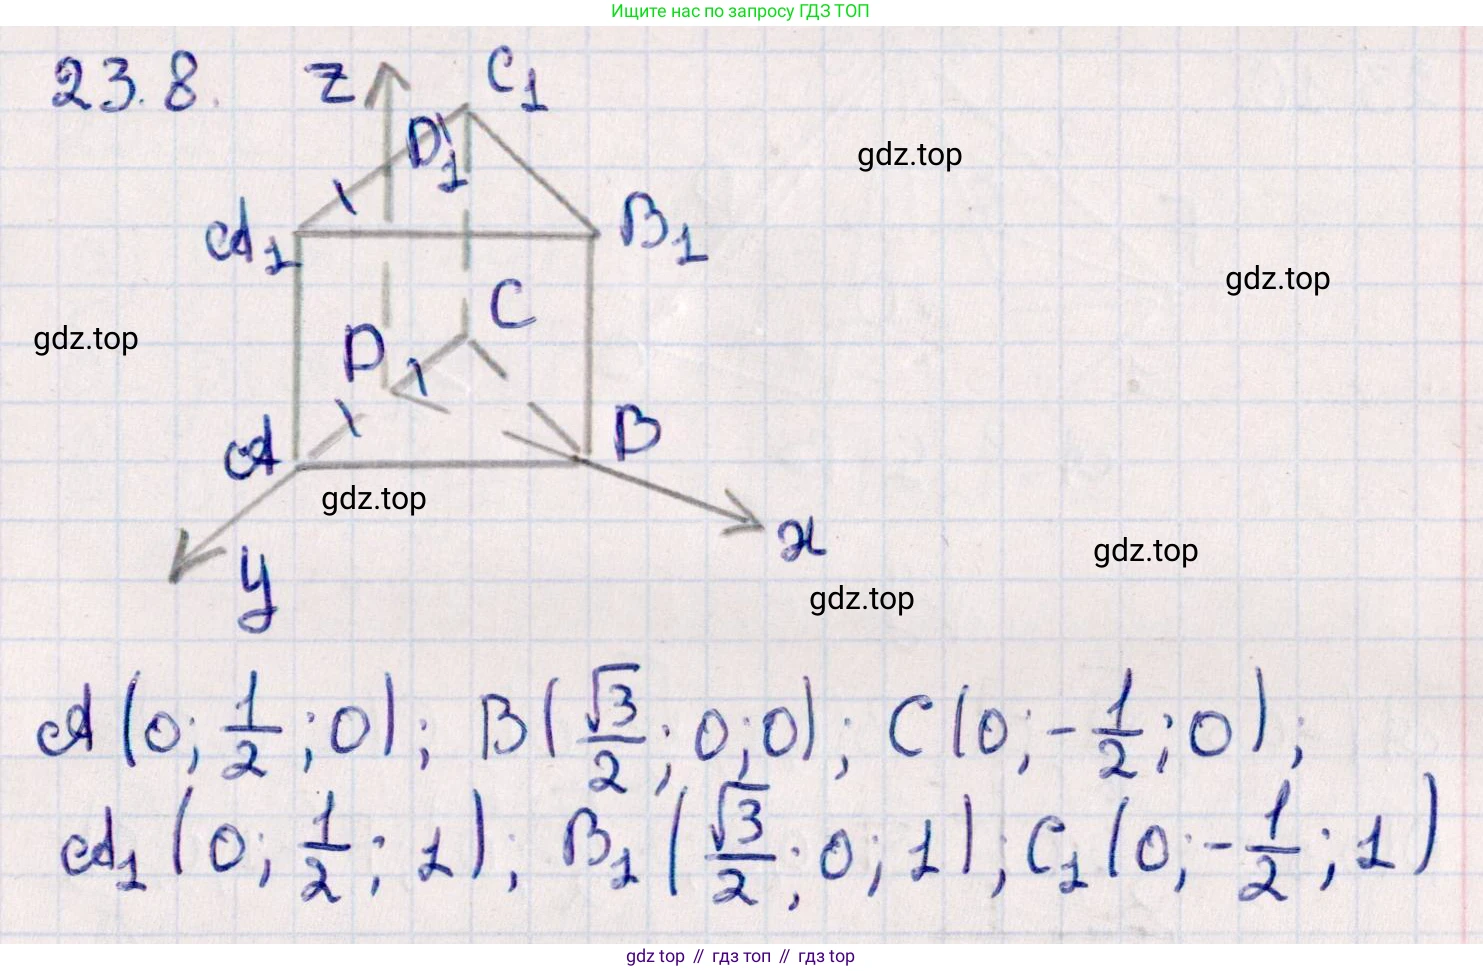 Ищите нас по запросу ГДЗ ТОП
23.8.
z
C₁
D₁
gdz.top
A₁
B₁
gdz.top
gdz.top
C
D
A
B
gdz.top
x
gdz.top
y
gdz.top
A(0; 1/2; 0); B(√3/2; 0; 0); C(0; -1/2; 0);
A₁(0; 1/2; 1); B₁(√3/2; 0; 1); C₁(0; -1/2; 1)
gdz.top // гдз топ // гдз top